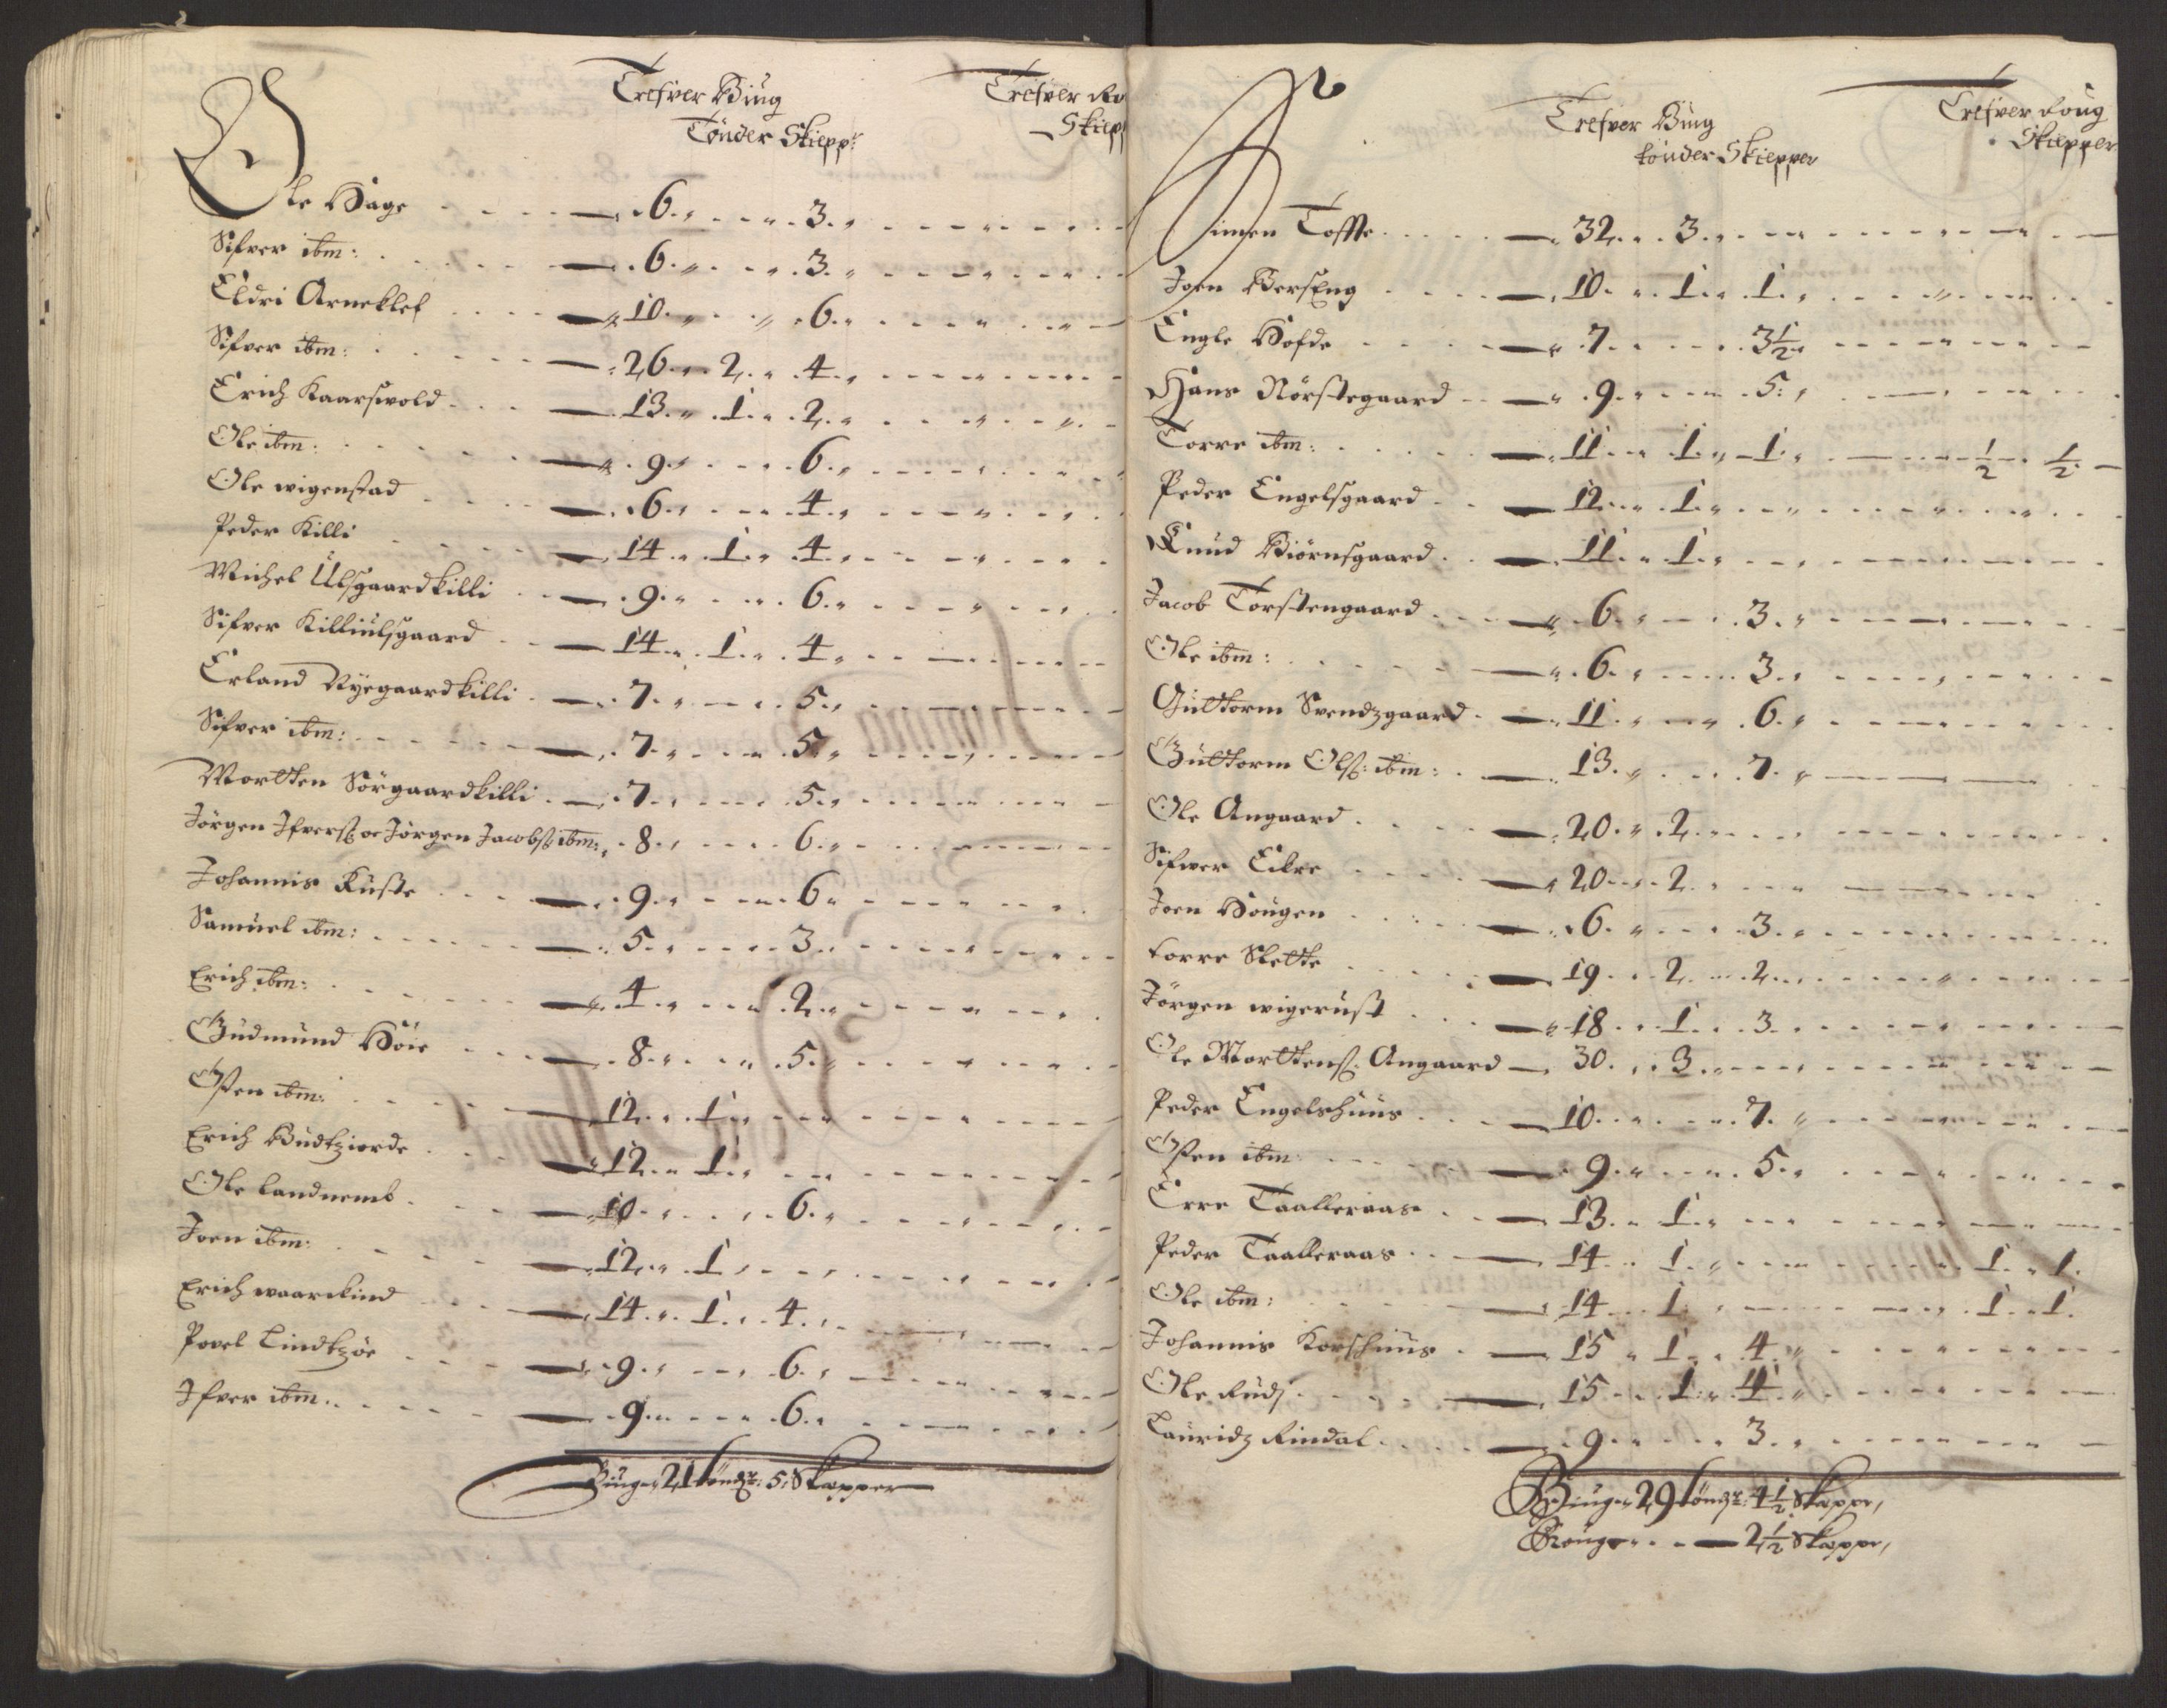 Trefver Biug Trefver Ro
Tønder Skiepp: Skiep
Ole Hage 6. 3.
Sifver ibm: 6. 3.
Eldri Arneklef 10. 6.
Sifver ibm: 26. 2. 4.
Erich Kaarsvold 13. 1. 2.
Ole ibm: 9. 6.
Ole wigenstad 6. 4.
Peder Killi 14. 1. 4.
Michel Ulsgaardkilli 9. 6.
Sifver Killiulsgaard 14. 1. 4.
Erland Nyegaardkilli 7. 5.
Sifver ibm: 7. 5.
Mortten Sørgaardkilli 7. 5.
Jørgen Ifverss: oc Jørgen Jacobss: ibm: 8. 6.
Johannis Kuste 9. 6
Samuel ibm: 5. 3.
Erich ibm: 4. 2.
Gudmund Høie 8. 5.
Østen ibm: 12. 1.
Erich Budtziorde 12. 1.
Ole Landnemb 10. 6.
Joen ibm: 12. 1
Erich waarkind 14. 1. 4.
Povel Lindtzøe 9. 6.
Ifver ibm. 9. 6.
Biug 21 tønd: 5 Skepper
Trefver Biug Trefver Roug
tønder Skiepper Skiepper
Simen Toffte 32. 3.
Joen BersEng 10. 1. 1.
Engle Hofde 7. 3½
Hans Nørstegaard 9. 5.
Torre ibm: 11 1. 1. ½ ½
Peder Engelsgaard 12. 1.
Knud Biørnsgaard 11. 1.
Jacob Torstengaard 6. 3.
Ole ibm: 6. 3.
Guttorm Svendzgaard 11. 6.
Guttorm Olss: ibm: 13. 7.
Ole Angaard 20. 2.
Sifwer Eikre 20. 2.
Joen Hougen 6. 3.
torre Slette 19. 2. 2.
Jørgen wigerust 18. 1. 3.
Ole Morttenss: Angaard 30. 3.
Peder Engelshuus 10. 7.
Østen ibm 9. 5.
Erre Taalleraas 13. 1.
Peder Taalleraas 14. 1. 1. 1.
Ole ibm: 14. 1. 1. 1.
Johannis Korschuus 15 1. 4.
Ole Rudj 15. 1. 4.
Lauridz Rindal 9. 3.
Biug 29 tønd: 4½ Skeppe,
Roug 2½ Skeppe,